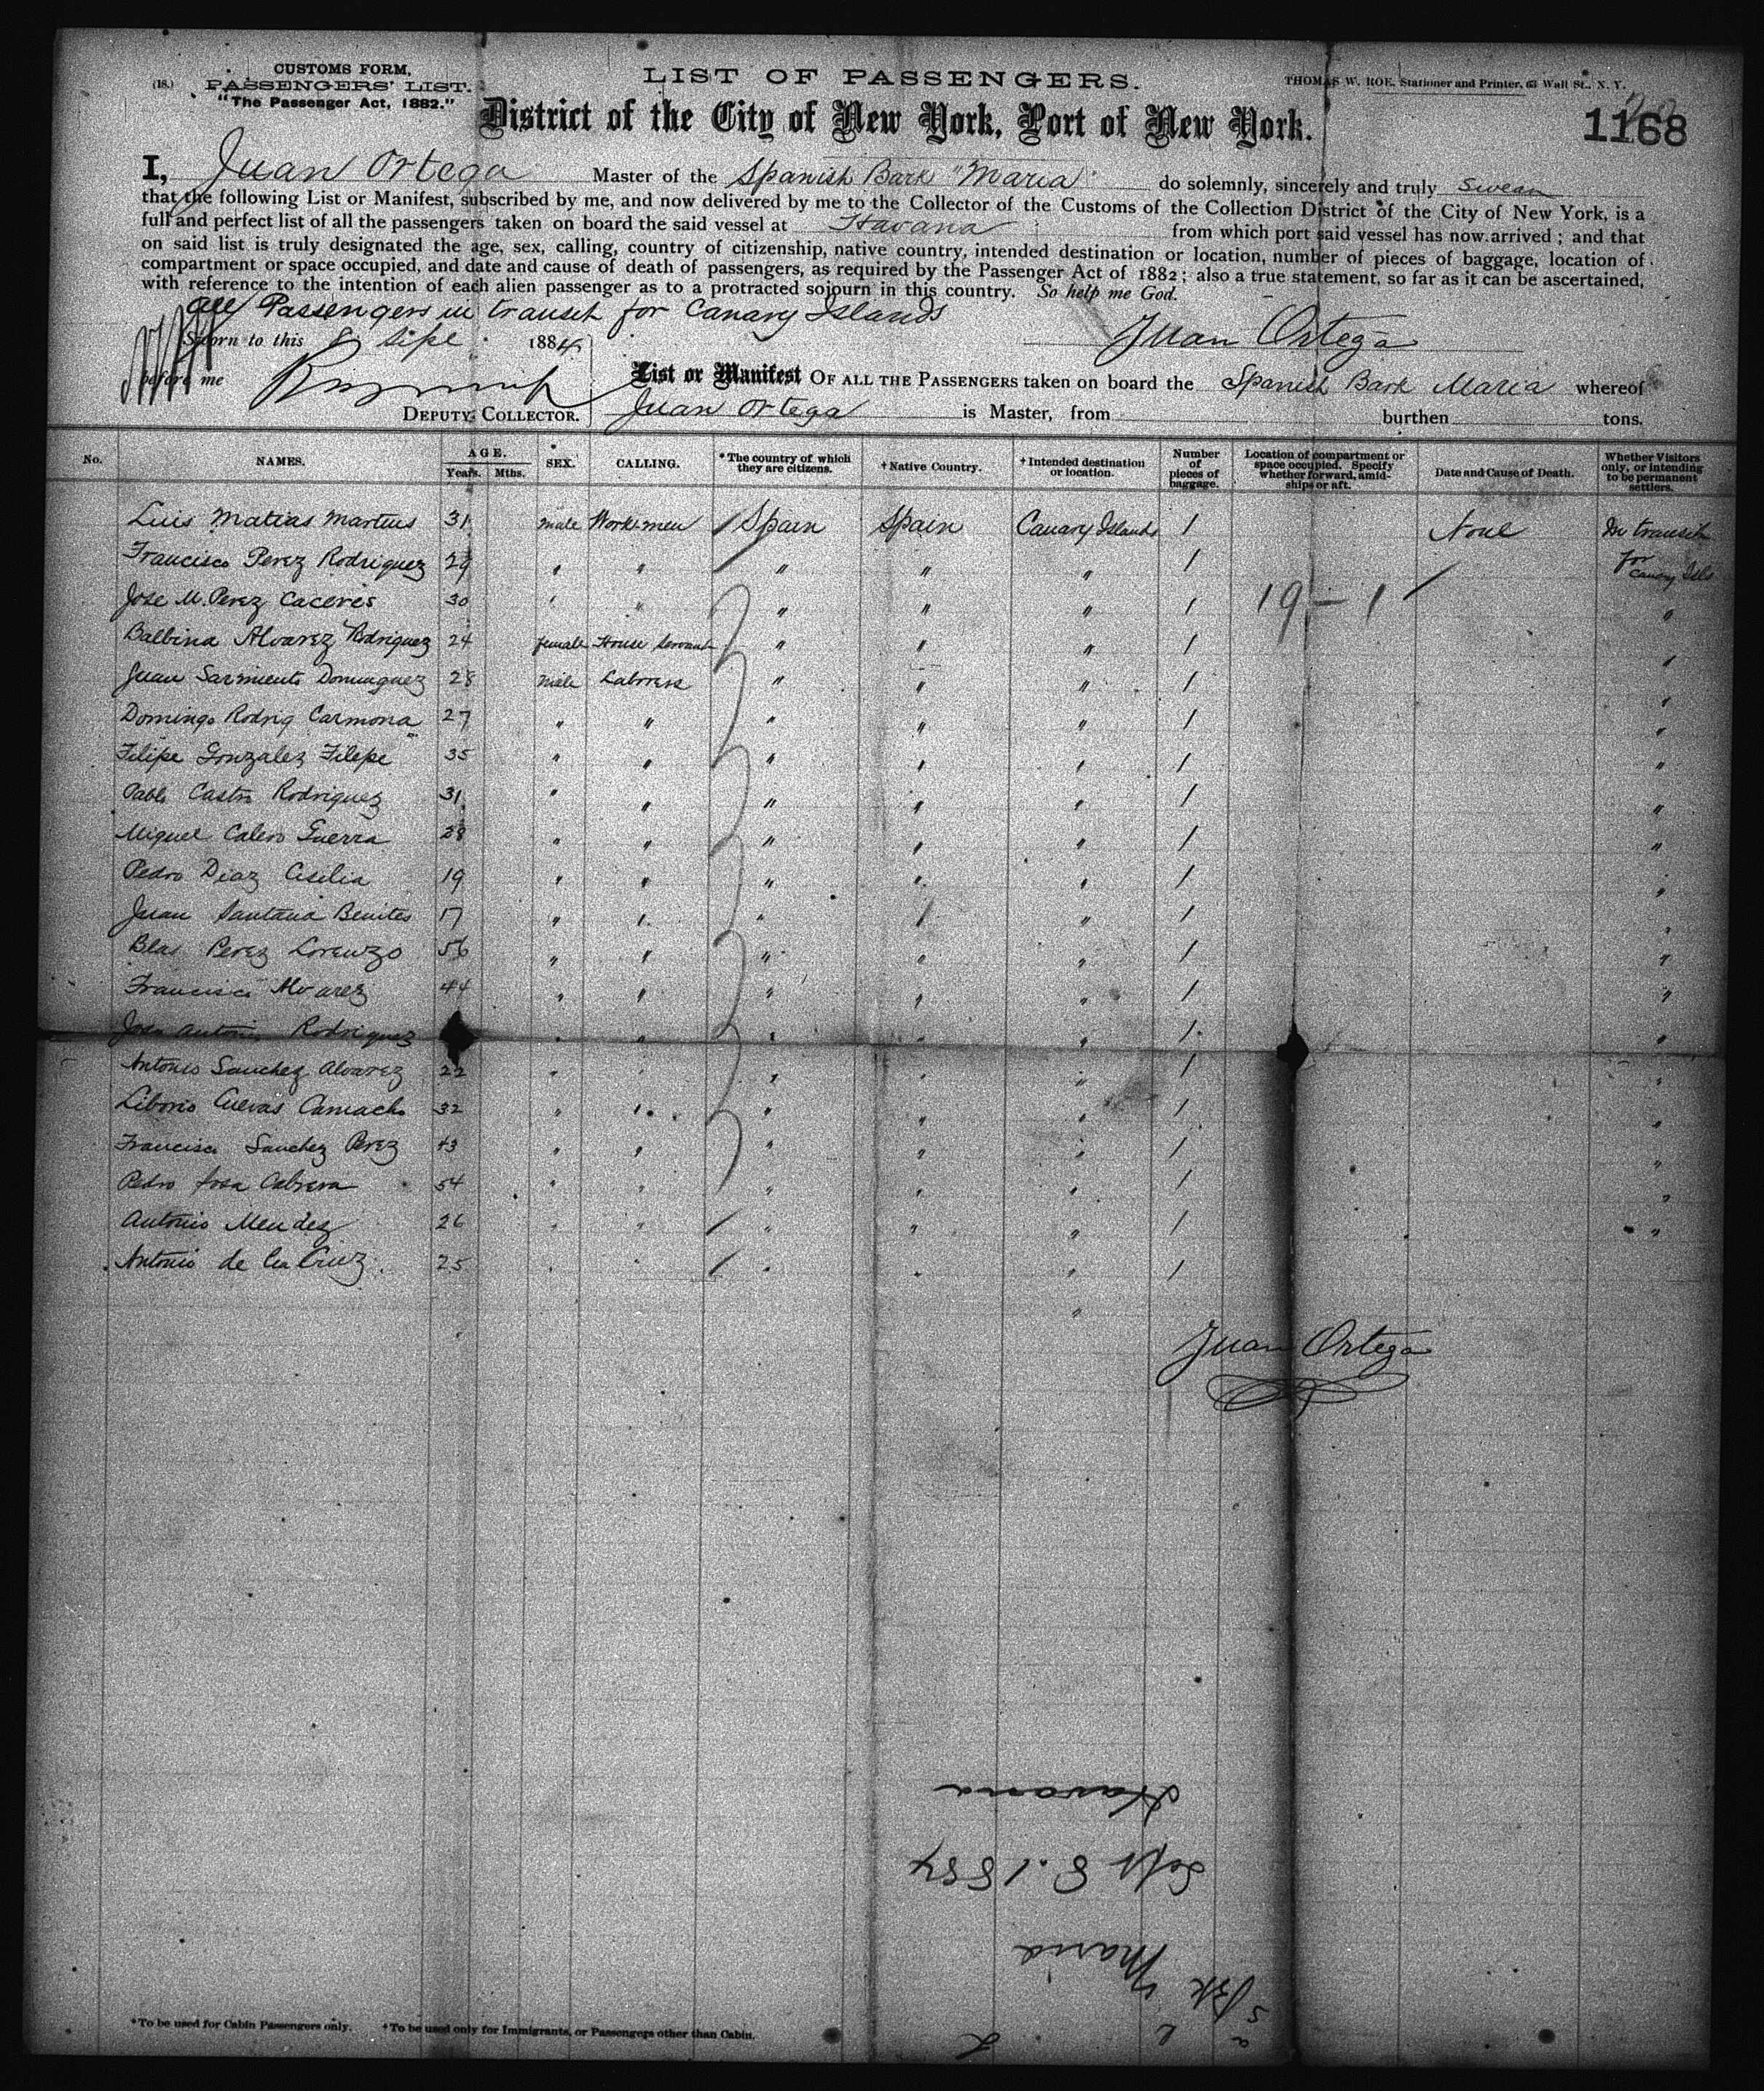 (18.)
CUSTOMS FORM,
PASSENGERS' LIST.
"The Passenger Act, 1882."
LIST OF PASSENGERS.
THOMAS W. ROE, Stationer and Printer, 63 Wall St., N. Y.
District of the City of New York, Port of New York.
1168
I, Juan Ortega Master of the Spanish Bark "Maria" do solemnly, sincerely and truly swear
that the following List or Manifest, subscribed by me, and now delivered by me to the Collector of the Customs of the Collection District of the City of New York, is a
full and perfect list of all the passengers taken on board the said vessel at Havana from which port said vessel has now arrived; and that
on said list is truly designated the age, sex, calling, country of citizenship, native country, intended destination or location, number of pieces of baggage, location of
compartment or space occupied, and date and cause of death of passengers, as required by the Passenger Act of 1882; also a true statement, so far as it can be ascertained,
with reference to the intention of each alien passenger as to a protracted sojourn in this country. So help me God.
all Passengers in transit for Canary Islands
Sworn to this 8 Sept 1884
Juan Ortega
before me
DEPUTY COLLECTOR.
List or Manifest OF ALL THE PASSENGERS taken on board the Spanish Bark Maria whereof
Juan Ortega is Master, from burthen tons.
No. NAMES. AGE. Years. Mths. SEX. CALLING. *The country of which they are citizens. †Native Country. †Intended destination or location. Number of pieces of baggage. Location of compartment or space occupied. Specify whether forward, amidships or aft. Date and Cause of Death. Whether Visitors only, or intending to be permanent settlers.
Luis Matias Martins 31 male Workmen Spain Spain Canary Islands 1 None In transit
Francisco Perez Rodriguez 29 " " " " " 1 for Canary Isls
Jose M. Perez Caceres 30 " " " " " 1 19 - 1 "
Balbina Alvarez Rodriguez 24 female House Servant " " " 1 "
Juan Sarmiento Dominguez 28 male Laborers " " " 1 "
Domingo Rodrig Carmona 27 " " " " " 1 "
Filipe Gonzalez Filipe 35 " " " " " 1 "
Pablo Castro Rodriguez 31 " " " " " 1 "
Miguel Calero Guerra 28 " " " " " 1 "
Pedro Diaz Cisilia 19 " " " " " 1 "
Juan Santana Benites 17 " " " " " 1 "
Blas Perez Lorenzo 56 " " " " " 1 "
Francisco Alvarez 44 " " " " " 1 "
Antonio Rodriguez " " " " " 1 "
Antonio Sanchez Alvarez 22 " " " " " 1 "
Liborio Cuevas Camacho 32 " " " " " 1 "
Francisco Sanchez Perez 43 " " " " " 1 "
Pedro Sosa Cabrera 54 " " " " " 1 "
Antonio Mendez 26 " " " " " 1 "
Antonio de la Cruz 25 " " " " " 1
"
Juan Ortega
Havana
Sept 8. 1884
Maria
Bk
*To be used for Cabin Passengers only. †To be used only for Immigrants, or Passengers other than Cabin.